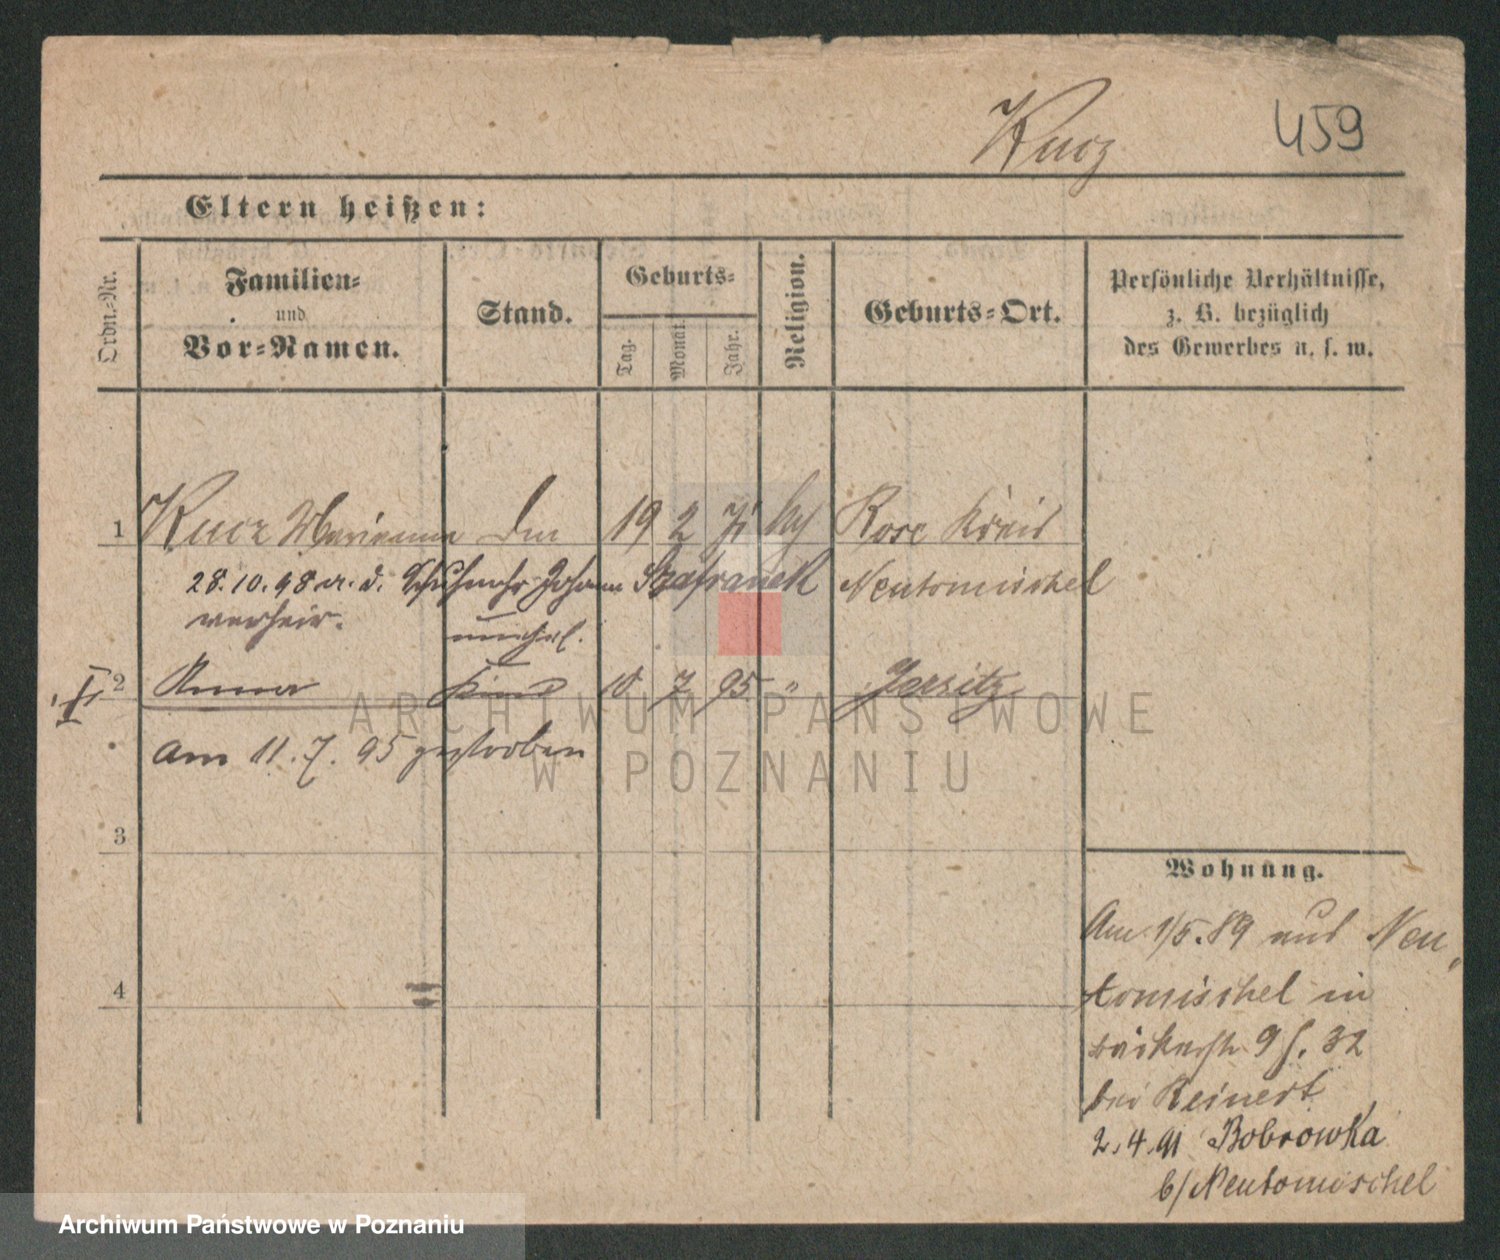 Kucz 459
Eltern heißen:
Ordn.-Nr.
Familien-
und
Vor-Namen.
Stand.
Geburts-
Tag.
Monat.
Jahr.
Religion.
Geburts-Ort.
Persönliche Verhältnisse,
z. B. bezüglich
des Gewerbes u. s. w.
1 Kucz Marianna 19 2 71 Rose Kreis
28.10.98 m. d. Johann Szafranek Neutomischel
verheir.
unehel.
2 Anna Kind 10 7 95 " Jersitz
am 11. 7. 95 gestorben
3
4
Wohnung.
Am 1/5. 89 aus Neu-
tomischel in
9 32
bei Reinert
2.4.91 Bobrowka
b/ Neutomischel
ARCHIWUM PAŃSTWOWE
W POZNANIU
Archiwum Państwowe w Poznaniu